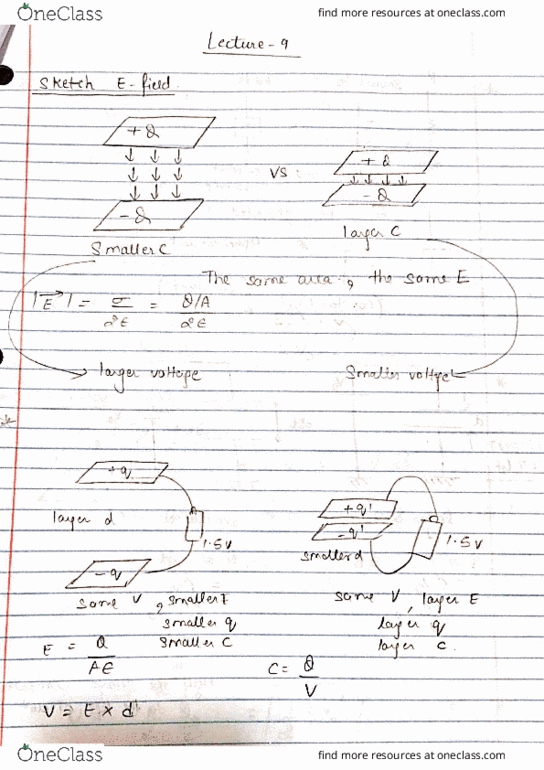 OneClass find more resources at oneclass.com
Lecture - 9
Sketch E-field.
+Q
-Q
Smaller C
VS
+Q
-Q
layer C
The same area, the same E
|E| = σ/2ε = Q/A/2ε
larger voltage
Smaller voltage
+q
layer d
1.5V
-q
same V, smaller E
smaller q
smaller C
+q'
-q'
smaller d
1.5V
same V, layer E
layer q
layer C.
E = Q/Aε
C = Q/V
V = E x d
OneClass find more resources at oneclass.com